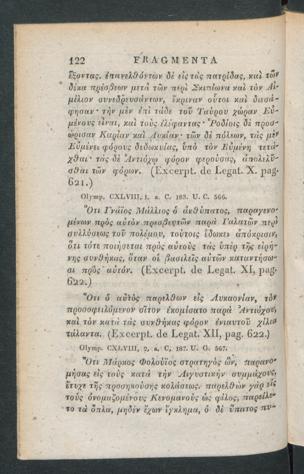 122 FRAGMENTA
ἥξοντας. ἐπανελθόντων δὲ εἰς τὰς πατρίδας, καὶ τῶν
δέκα πρέσβεων μετὰ τῶν περὶ Σκιπίωνα καὶ τὸν Αἰ-
μίλιον συνεδρευσάντων, ἔκριναν οὗτοι καὶ διεσά-
φησαν· τὴν μὲν ἐπὶ τάδε τοῦ Ταύρου χώραν Εὐ-
μένους εἶναι, καὶ τοὺς ἐλέφαντας· Ῥοδίοις δὲ προσ-
ώρισαν Καρίαν καὶ Λυκίαν· τῶν δὲ πόλεων, τὰς μὲν
Εὐμένει φόρους διδωκυίας, ὑπὸ τὸν Εὐμένη τετά-
χθαι· τὰς δὲ Ἀντιόχῳ φόρον φερούσας, ἀπολελῦ-
σθαι τῶν φόρων. (Excerpt. de Legat. X. pag.
621.)
Olymp. CXLVIII, 1. a. C. 188. U. C. 566.
Ὅτι Γναῖος Μάλλιος ὁ ἀνθύπατος, παραγενο-
μένων πρὸς αὐτὸν πρεσβευτῶν παρὰ Γαλατῶν περὶ
συλλύσεως τοῦ πολέμου, τούτοις ἔδωκεν ἀπόκρισιν,
ὅτι τότε ποιήσεται πρὸς αὐτοὺς τὰς ὑπὲρ τῆς εἰρή-
νης συνθήκας, ὅταν οἱ βασιλεῖς αὐτῶν καταντήσω-
σι πρὸς αὐτόν. (Excerpt. de Legat. XI, pag.
622.)
Ὅτι ὁ αὐτὸς παρελθὼν εἰς Λυκαονίαν, τὸν
προσοφειλόμενον σῖτον ἐκομίσατο παρὰ Ἀντιόχου,
καὶ τὸν κατὰ τὰς συνθήκας φόρον ἐνιαυτοῦ χίλια
τάλαντα. (Excerpt. de Legat. XII, pag. 622.)
Olymp. CXLVIII, 2. a. C. 187. U. C. 567.
Ὅτι Μάρκος Φολούϊος στρατηγὸς ὢν, παρανο-
μήσας εἰς τοὺς κατὰ τὴν Λιγυστικὴν συμμάχους,
ἔτυχε τῆς προσηκούσης κολάσεως. παρελθὼν γὰρ εἰς
τοὺς ὀνομαζομένους Κενομανοὺς ὡς φίλος, παρείλε-
το τὰ ὅπλα, μηδὲν ἔχων ἔγκλημα, ὁ δὲ ὕπατος πυ-